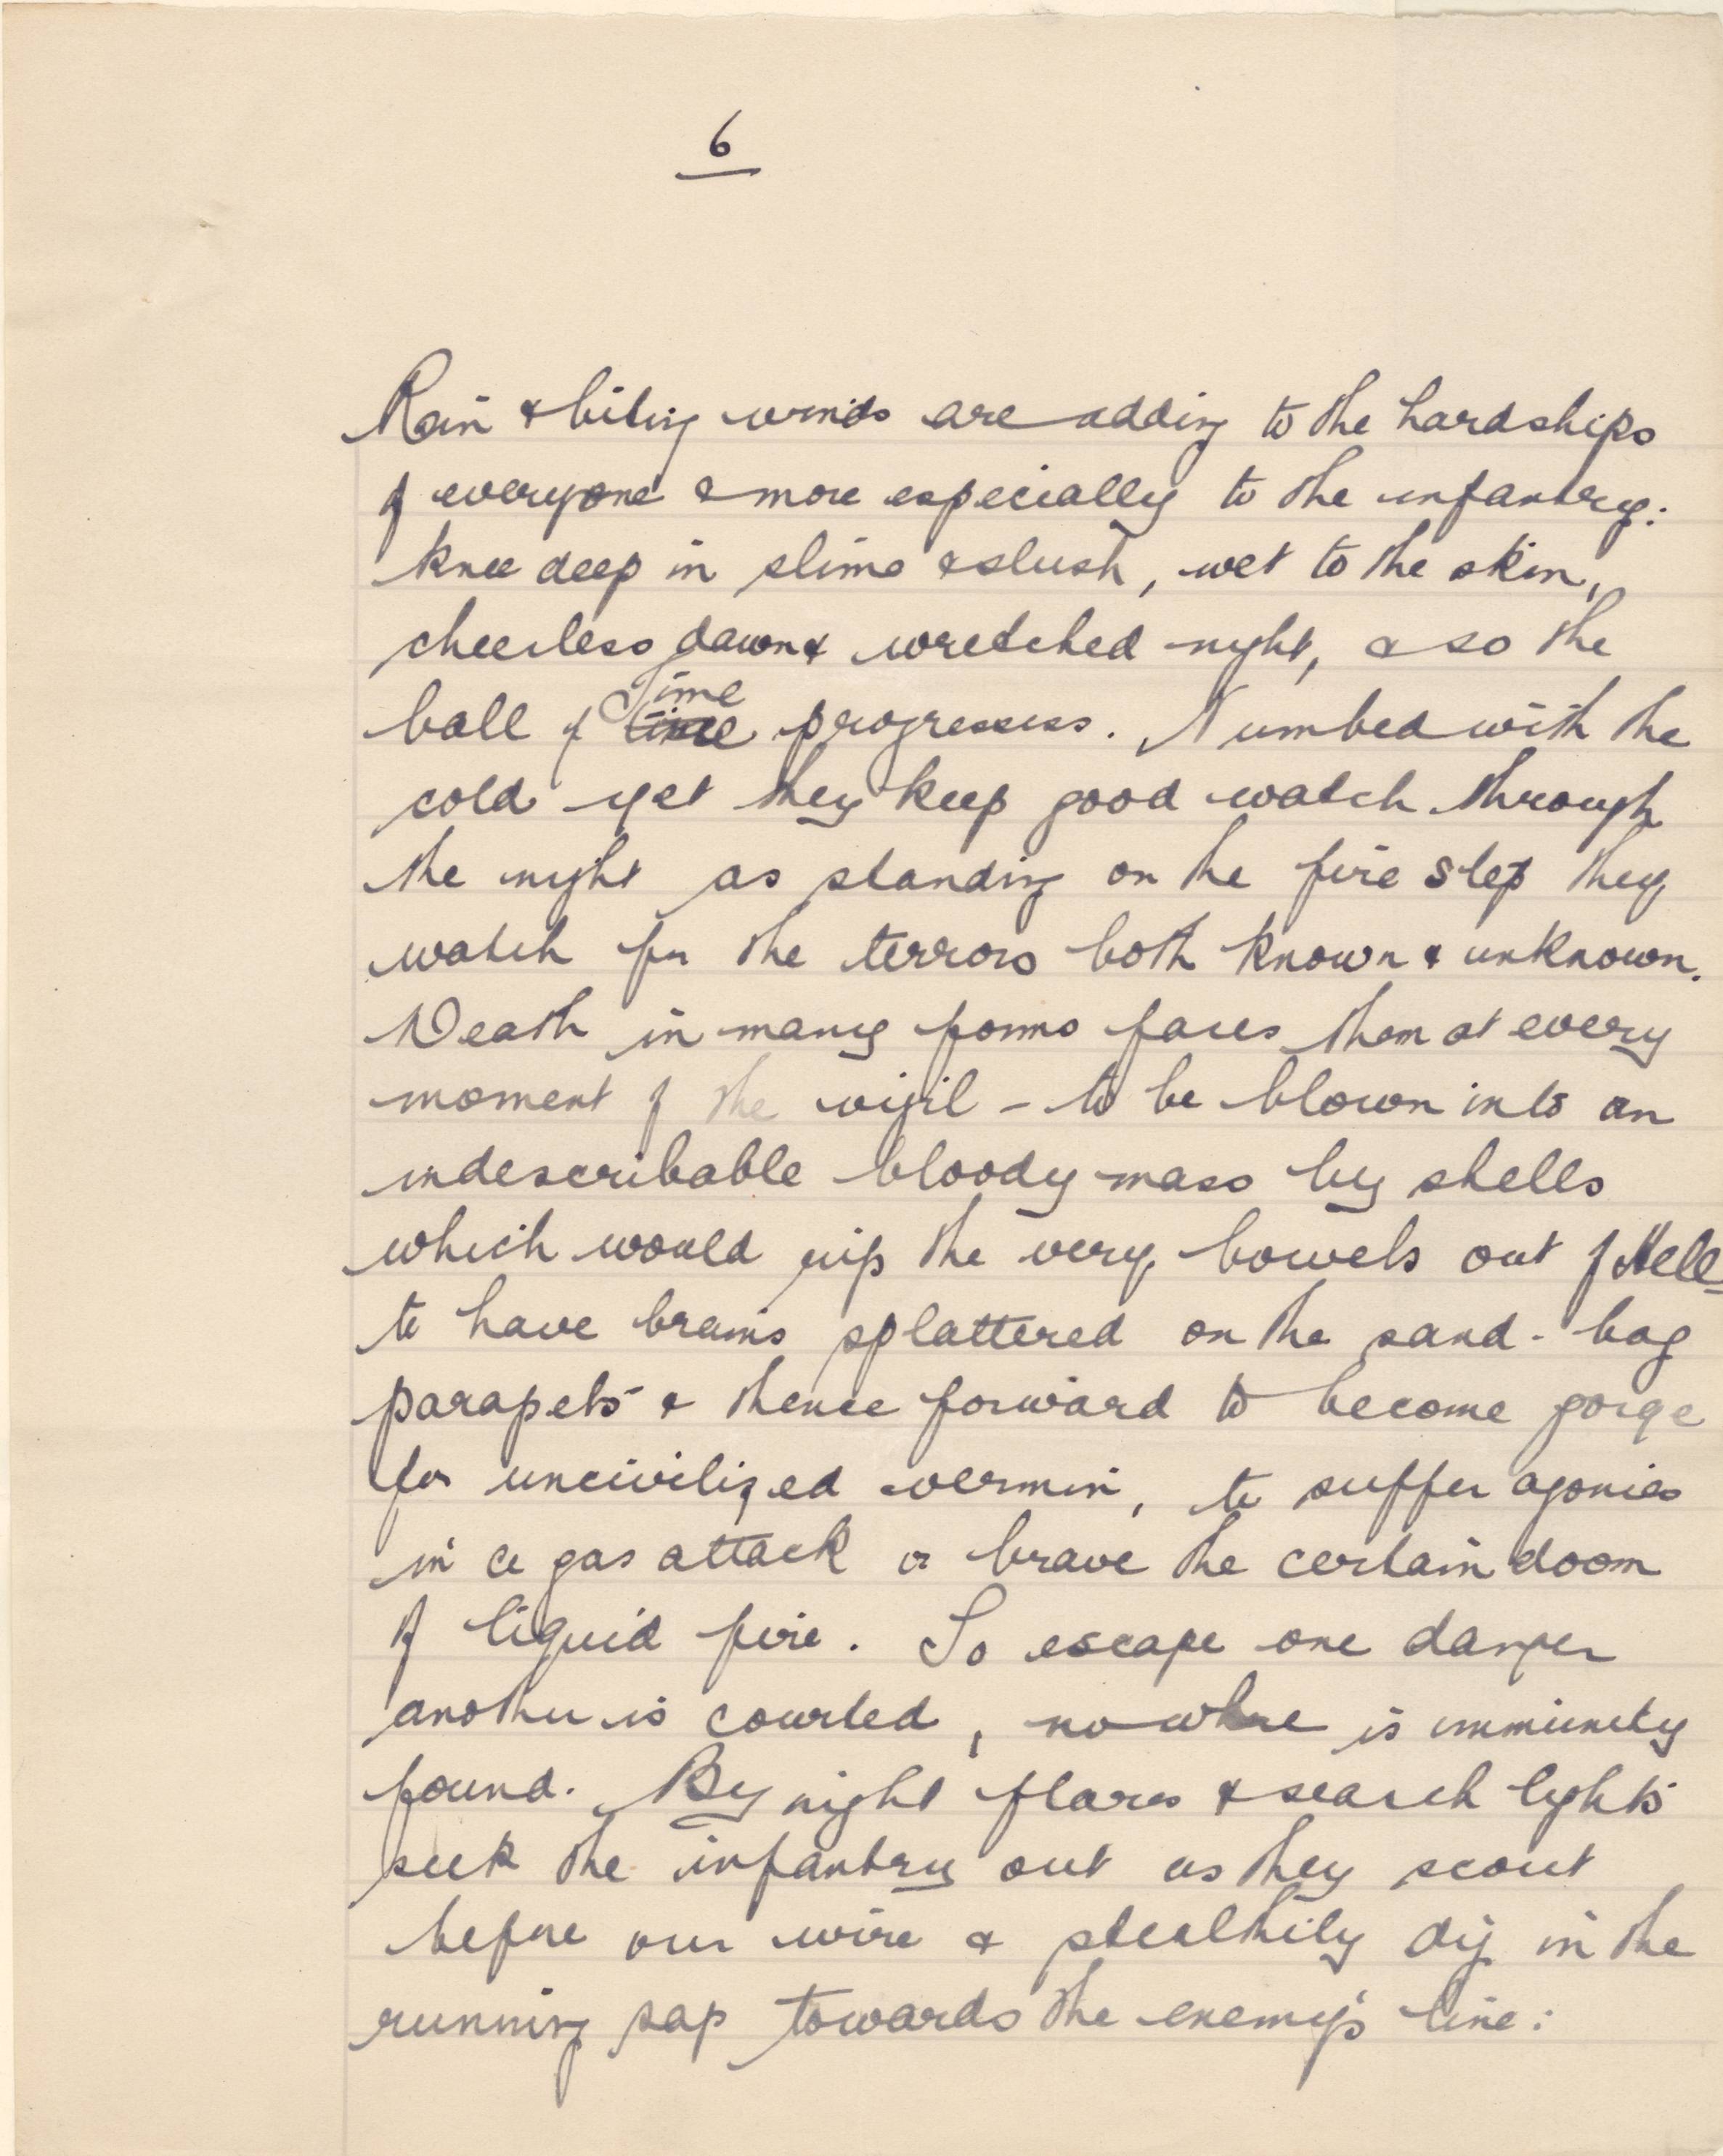 6
Rain & biting winds are adding to the hardships
of everyone & more especially to the infantry:
knee deep in slime & slush, wet to the skin,
cheerless dawn & wretched night, & so the
ball of Time progresses. Numbed with the
cold yet they keep good watch through
the night as standing on the fire step they
watch for the terrors both known & unknown.
Death in many forms faces them at every
moment of the vigil - to be blown into an
indescribable bloody mass by shells
which would rip the very bowels out of Hell -
to have brains splattered on the sand-bag
parapets & thence forward to become gorge
for uncivilized vermin, to suffer agonies
in a gas attack or brave the certain doom
of liquid fire. To escape one danger
another is courted, nowhere is immunity
found. By night flares & search lights
seek the infantry out as they scout
before our wire & stealthily dig in the
running sap towards the enemy's line: